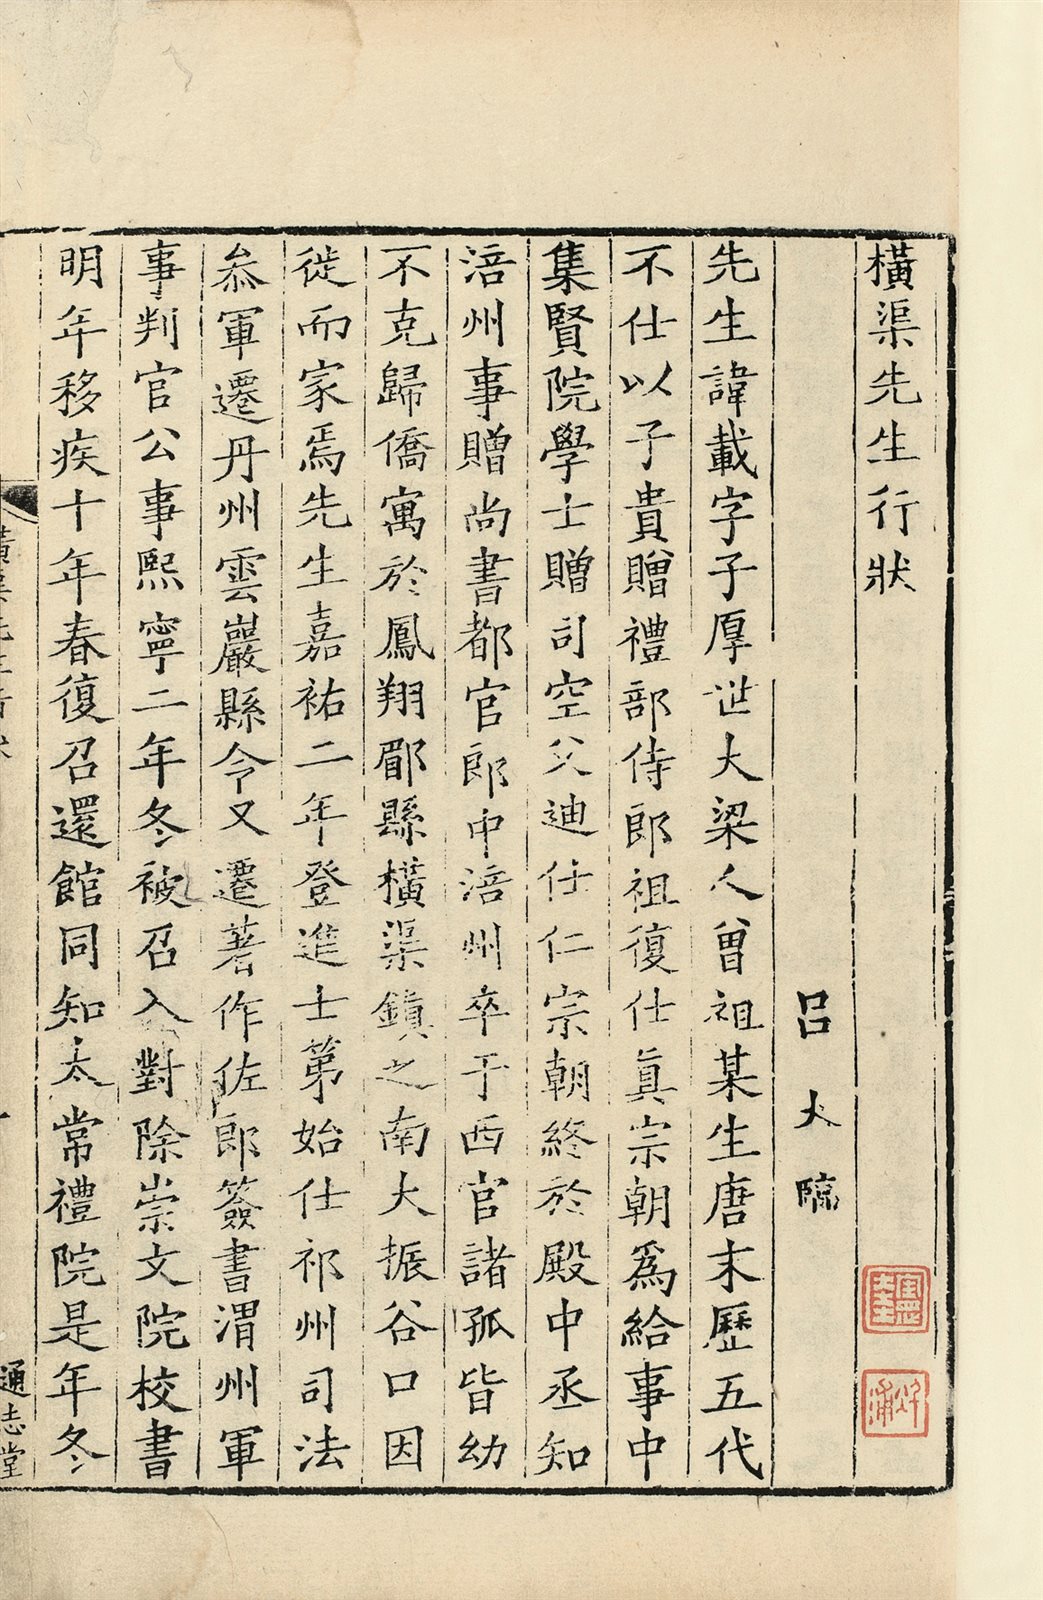 橫渠先生行狀
呂大臨
先生諱載字子厚世大梁人曾祖某生唐末歷五代
不仕以子貴贈禮部侍郎祖復仕真宗朝爲給事中
集賢院學士贈司空父迪仕仁宗朝終於殿中丞知
涪州事贈尚書都官郎中涪州卒于西官諸孤皆幼
不克歸僑寓於鳳翔郿縣橫渠鎮之南大振谷口因
徙而家焉先生嘉祐二年登進士第始仕祁州司法
叅軍遷丹州雲巖縣令又遷著作佐郎簽書渭州軍
事判官公事熙寧二年冬被召入對除崇文院校書
明年移疾十年春復召還館同知太常禮院是年冬
橫渠先生行狀
一
通志堂